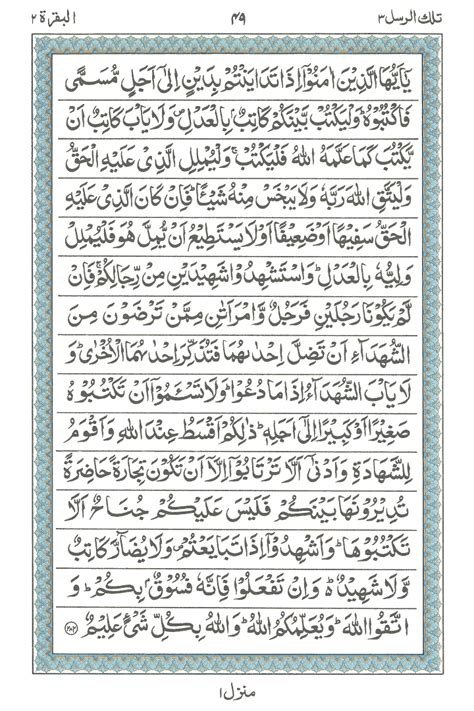 تلك الرسل ٣ ۴۹ البقرة ٢
يٰۤاَيُّهَا الَّذِيْنَ اٰمَنُوْۤا اِذَا تَدَايَنْتُمْ بِدَيْنٍ اِلٰۤى اَجَلٍ مُّسَمًّى
فَاكْتُبُوْهُ ؕ وَلْيَكْتُبْ بَّيْنَكُمْ كَاتِبٌۢ بِالْعَدْلِ ۪ وَلَا يَاْبَ كَاتِبٌ اَنْ
يَّكْتُبَ كَمَا عَلَّمَهُ اللّٰهُ فَلْيَكْتُبْ ۚ وَلْيُمْلِلِ الَّذِيْ عَلَيْهِ الْحَقُّ
وَلْيَتَّقِ اللّٰهَ رَبَّهٗ وَلَا يَبْخَسْ مِنْهُ شَيْـًٔا ؕ فَاِنْ كَانَ الَّذِيْ عَلَيْهِ
الْحَقُّ سَفِيْهًا اَوْ ضَعِيْفًا اَوْ لَا يَسْتَطِيْعُ اَنْ يُّمِلَّ هُوَ فَلْيُمْلِلْ
وَلِيُّهٗ بِالْعَدْلِ ؕ وَاسْتَشْهِدُوْا شَهِيْدَيْنِ مِنْ رِّجَالِكُمْ ۚ فَاِنْ
لَّمْ يَكُوْنَا رَجُلَيْنِ فَرَجُلٌ وَّامْرَاَتٰنِ مِمَّنْ تَرْضَوْنَ مِنَ
الشُّهَدَآءِ اَنْ تَضِلَّ اِحْدٰىهُمَا فَتُذَكِّرَ اِحْدٰىهُمَا الْاُخْرٰى ؕ وَ
لَا يَاْبَ الشُّهَدَآءُ اِذَا مَا دُعُوْا ؕ وَلَا تَسْـَٔمُوْۤا اَنْ تَكْتُبُوْهُ
صَغِيْرًا اَوْ كَبِيْرًا اِلٰۤى اَجَلِهٖ ؕ ذٰلِكُمْ اَقْسَطُ عِنْدَ اللّٰهِ وَاَقْوَمُ
لِلشَّهَادَةِ وَاَدْنٰۤى اَلَّا تَرْتَابُوْۤا اِلَّاۤ اَنْ تَكُوْنَ تِجَارَةً حَاضِرَةً
تُدِيْرُوْنَهَا بَيْنَكُمْ فَلَيْسَ عَلَيْكُمْ جُنَاحٌ اَلَّا
تَكْتُبُوْهَا ؕ وَاَشْهِدُوْۤا اِذَا تَبَايَعْتُمْ ۪ وَلَا يُضَآرَّ كَاتِبٌ
وَّلَا شَهِيْدٌ ؕ وَاِنْ تَفْعَلُوْا فَاِنَّهٗ فُسُوْقٌۢ بِكُمْ ؕ وَ
اتَّقُوا اللّٰهَ ؕ وَيُعَلِّمُكُمُ اللّٰهُ ؕ وَاللّٰهُ بِكُلِّ شَيْءٍ عَلِيْمٌ ﴿۲۸۲﴾
منزل ١